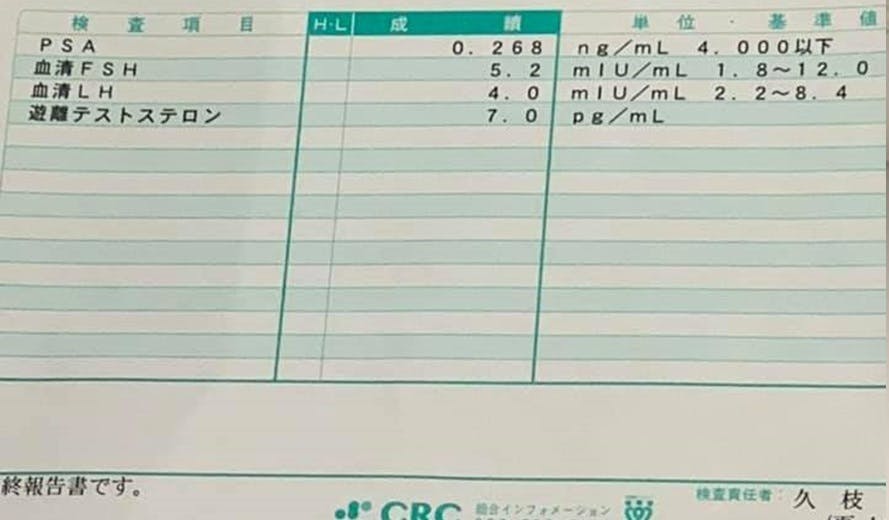 検査項目 H・L 成績 単位・基準値
PSA 0.268 ng/mL 4.000以下
血清FSH 5.2 mIU/mL 1.8～12.0
血清LH 4.0 mIU/mL 2.2～8.4
遊離テストステロン 7.0 pg/mL
終報告書です。
検査責任者： 久枝
CRC 総合インフォメーション